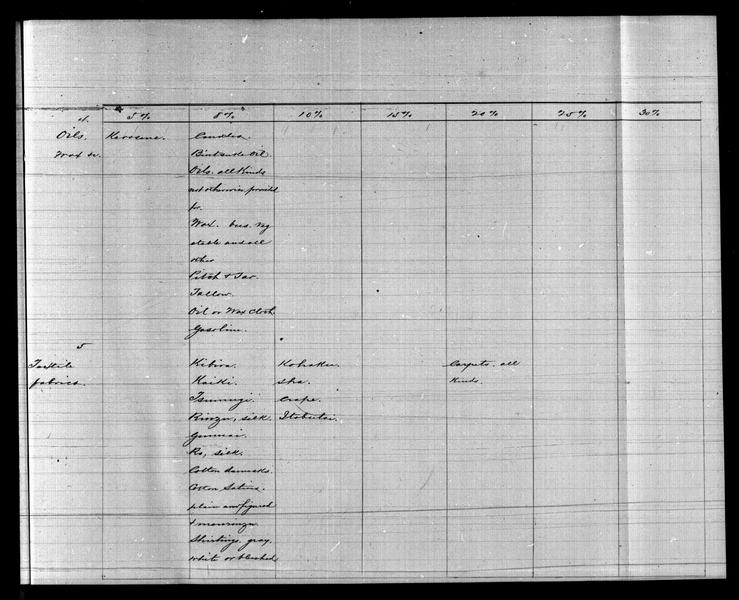 5% 8% 10% 15% 20% 25% 30%
4.
Oils. Kerosene. Candles.
Wax &c. Oil.
Oils. all kinds
not otherwise provided
for.
Wax. bees. veg
etable and all
other
Pitch & Tar.
Tallow.
Oil or Wax Cloth
Gasoline.
5
Textile Kibira. Kohaku. Carpets. all
fabrics. Kaiki. Sha. Kinds.
Tsumugi. Crape.
Rinzu, silk. Itobutai.
Gunnai.
Ro, silk.
Cotton damasks.
Cotton Satins.
plain and figured
&
Shirtings, gray,
white or bleached